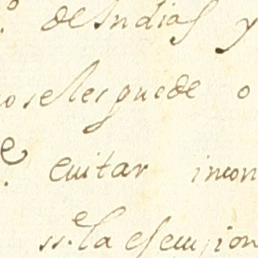 o de Indias y
oseles puede o
e euitar incon
ss.e la esecusion